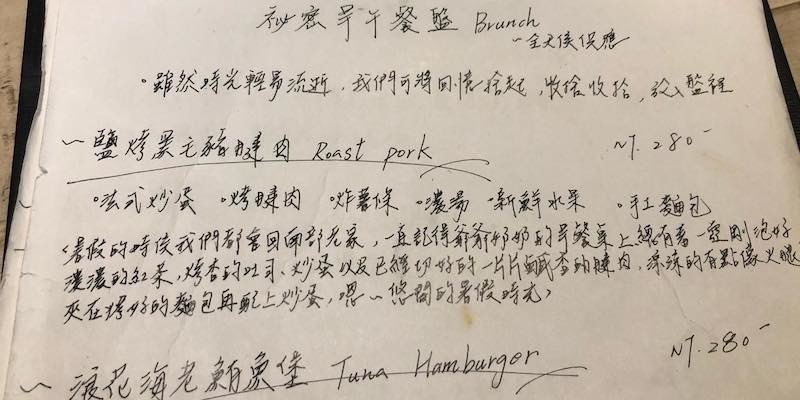 祕密早午餐盤 Brunch
~全天候供應
•雖然時光輕易流逝,我們可將回憶拾起,收拾收拾,放入盤裡
~鹽烤黑毛豬腱肉 Roast pork NT. 280-
•法式炒蛋 •烤腱肉 •炸薯條 •濃湯 •新鮮水果 •手工麵包
(暑假的時候我們都會回南部老家,一直記得爺爺奶奶的早餐桌上總有著一壺剛泡好
濃濃的紅茶,烤香的吐司、炒蛋以及已經切好的一片片鹹香的腱肉,涼涼的有點像火腿
夾在烤好的麵包再配上炒蛋,嗯~悠閒的暑假時光)
~浪花海老鮪魚堡 Tuna Hamburger NT. 280-